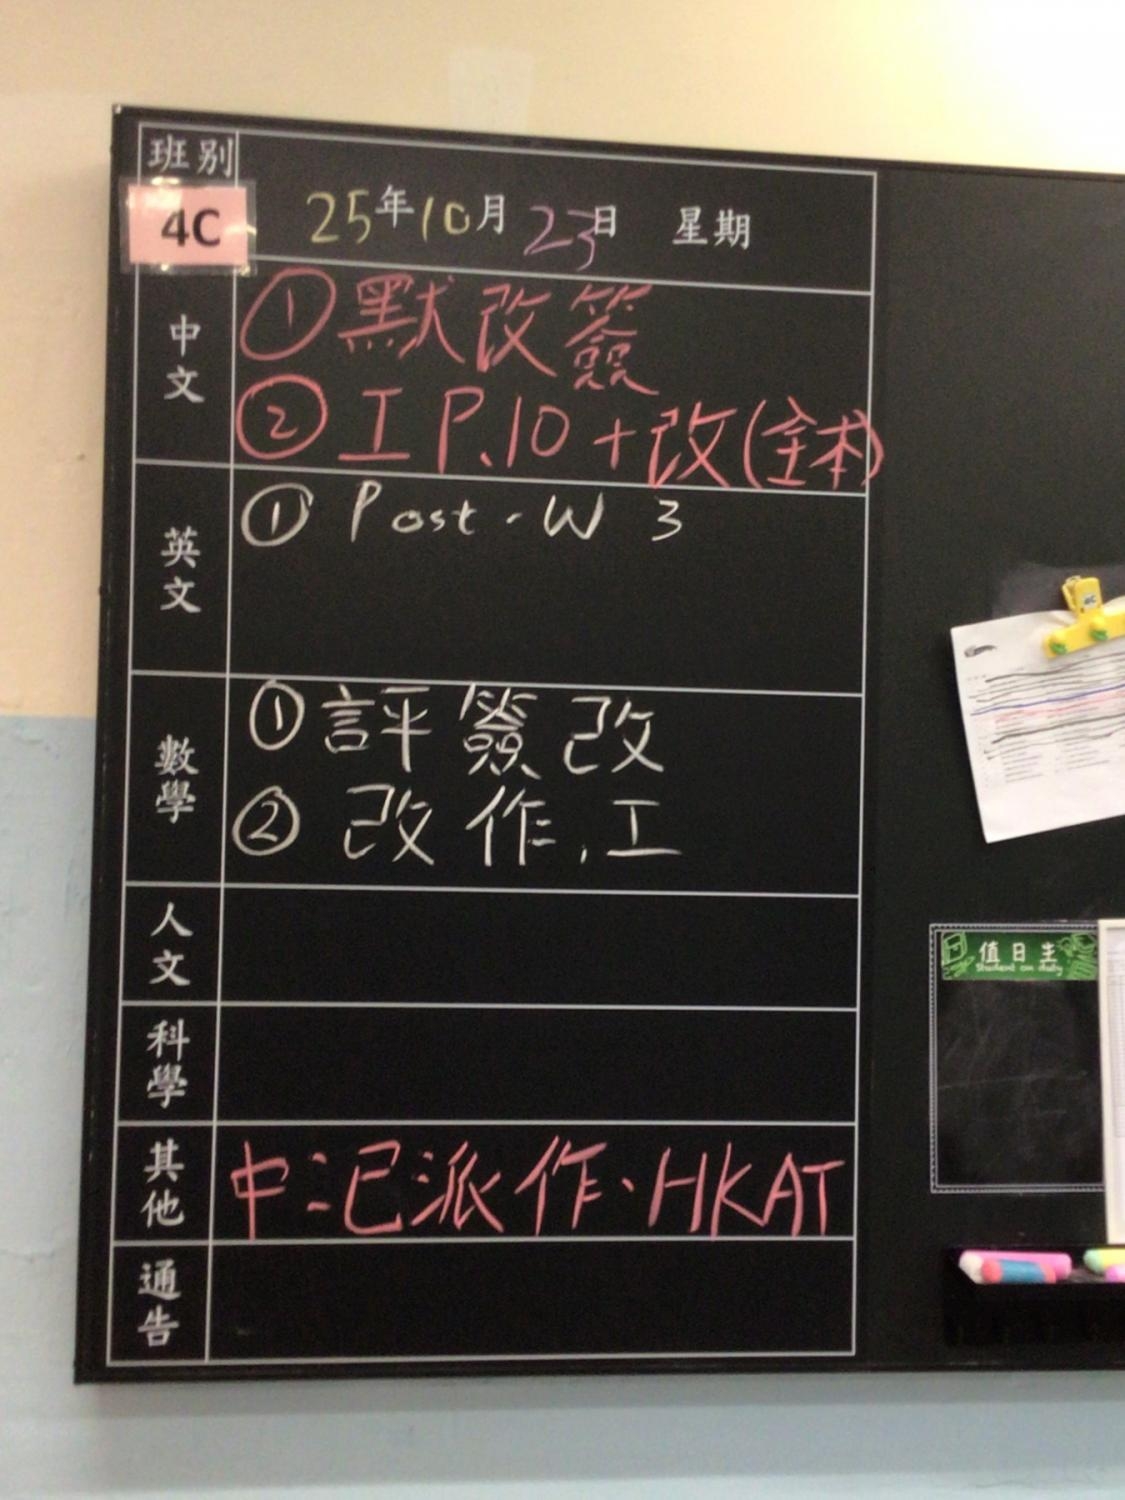 班別
4C
25年10月23日 星期
中文
① 默改簽
② 工 P.10 + 改(全本)
英文
① Post-W 3
數學
① 評簽改
② 改作、工
人文
科學
其他
中：已派作、HKAT
通告
值日生
Student on duty